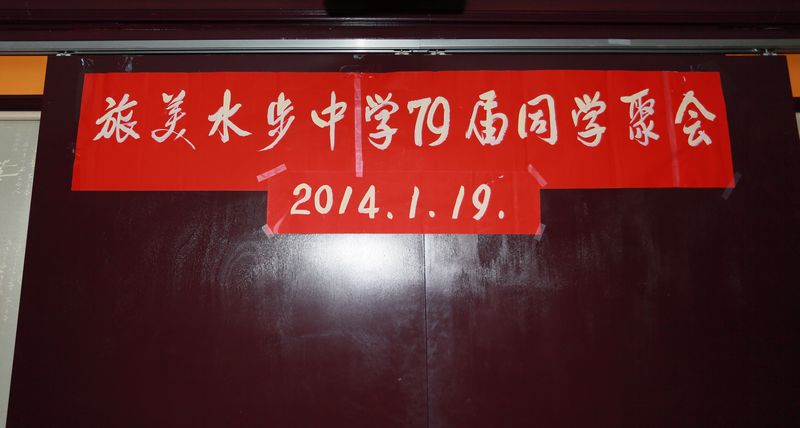 旅美水步中学79届同学聚会
2014.1.19.